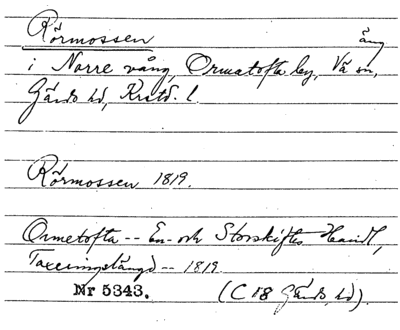 Rörmossen äng
i Norre vång, Ormatofta by, Vä sn,
Gärds hd, Krstd. l.
Rörmossen 1819.
Ormetofta -- En- och Storskiftes Handl,
Taxeringslängd -- 1819.
Nr 5343. (C 18 Gärds hd).